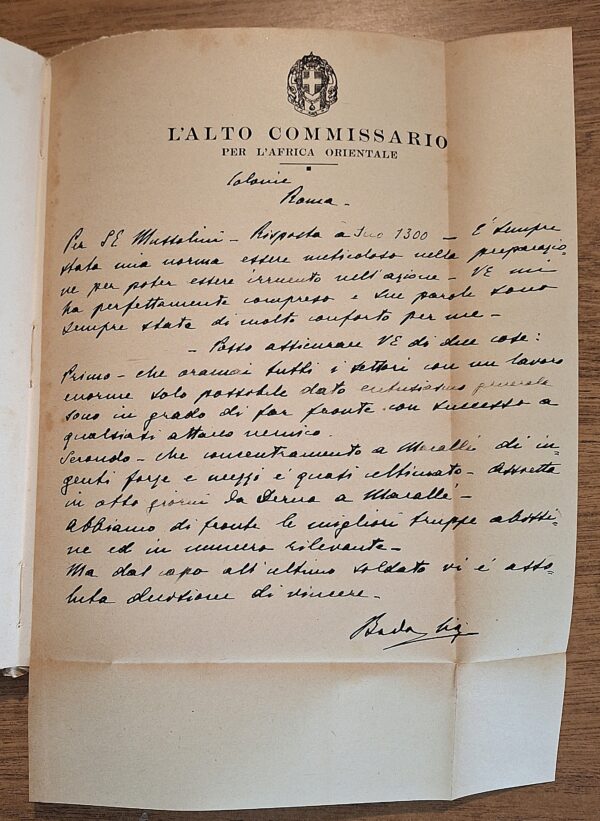 L'ALTO COMMISSARIO
PER L'AFRICA ORIENTALE
Colonie
Roma -
Per S.E Mussolini - Risposta a Suo 1300 - É sempre
stata mia norma essere meticoloso nella preparazio-
ne per poter essere irruento nell'azione - VE mi
ha perfettamente compreso e sue parole sono
sempre state di molto conforto per me -
- Posso assicurare VE di due cose:
Primo - che oramai tutti i settori con un lavoro
enorme solo possibile dato entusiasmo generale
sono in grado di far fronte con successo a
qualsiasi attacco nemico.
Secondo - che concentramento a Macallé di in-
genti forze e mezzi é quasi ultimato - Assietta
in otto giorni da Derna a Macallé -
Abbiamo di fronte le migliori truppe abissi-
ne ed in numero rilevante -
Ma dal capo all'ultimo soldato vi é asso-
luta decisione di vincere -
Badoglio